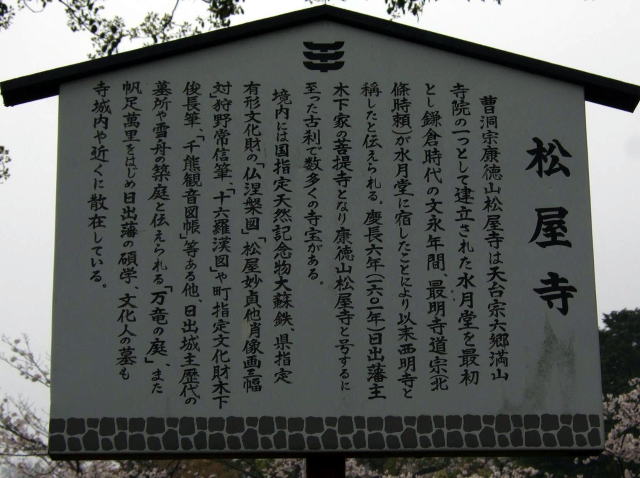 松屋寺
曹洞宗康徳山松屋寺は天台宗六郷満山
寺院の一つとして建立された水月堂を最初
とし鎌倉時代の文永年間、最明寺道宗(北
條時頼)が水月堂に宿したことにより以来西明寺と
称したと伝えられる。慶長六年(一六〇一年)日出藩主
木下家の菩提寺となり康徳山松屋寺と号するに
至った古刹で数多くの寺宝がある。
境内には国指定天然記念物大蘇鉄、県指定
有形文化財の「仏涅槃図」「松屋妙貞他肖像画三幅
対」狩野常信筆、「十六羅漢図」や町指定文化財木下
俊長筆、「千熊観音図帳」等ある他、日出城主歴代の
墓所や雪舟の築庭と伝えられる「万竜の庭」、また
帆足萬里をはじめ日出藩の碩学、文化人の墓も
寺城内や近くに散在している。